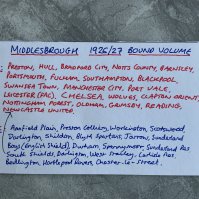 MIDDLESBROUGH 1926/27 BOUND VOLUME
: PRESTON, HULL, BRADFORD CITY, NOTTS COUNTY, BARNSLEY,
PORTSMOUTH, FULHAM, SOUTHAMPTON, BLACKPOOL,
SWANSEA TOWN, MANCHESTER CITY, PORT VALE,
LEICESTER (FAC) CHELSEA, WOLVES, CLAPTON ORIENT,
NOTTINGHAM FOREST, OLDHAM, GRIMSBY, READING,
NEWCASTLE UNITED.
: Annfield Plain, Preston Colliery, Workington, Scotswood,
Darlington, Shildon, Blyth Spartans, Jarrow, Sunderland
Boys (English Shield), Durham, Spennymoor, Sunderland Res
South Shields, Darlington, West Stanley, Carlisle Res
Bedlington, Hartlepool Rovers, Chester-le-Street.